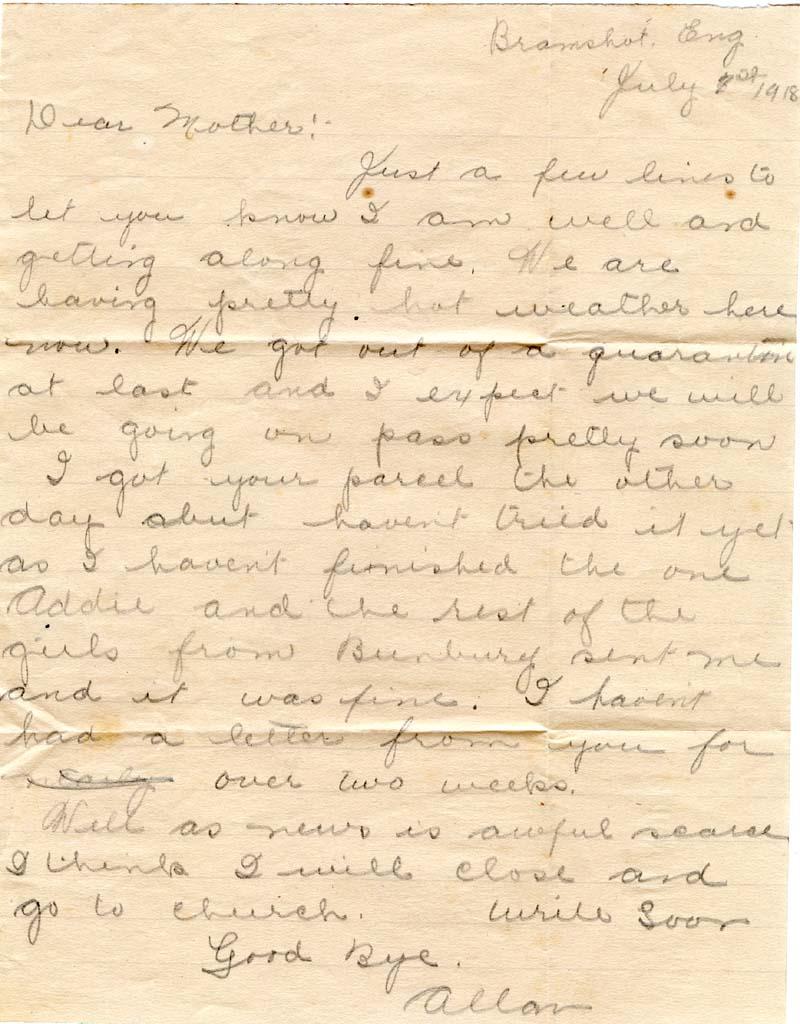 Bramshot, Eng.
July 1918
Dear Mother:-
Just a few lines to
let you know I am well and
getting along fine. We are
having pretty hot weather here
now. We got out of a quarantine
at last and I expect we will
be going on pass pretty soon
I got your parcel the other
day but havent tried it yet
as I havent finished the one
Addie and the rest of the
girls from Bunbury sent me
and it was fine. I havent
had a letter from you for
over two weeks.
Well as news is awful scarce
I think I will close and
go to church. Write Soon
Good Bye.
Allan